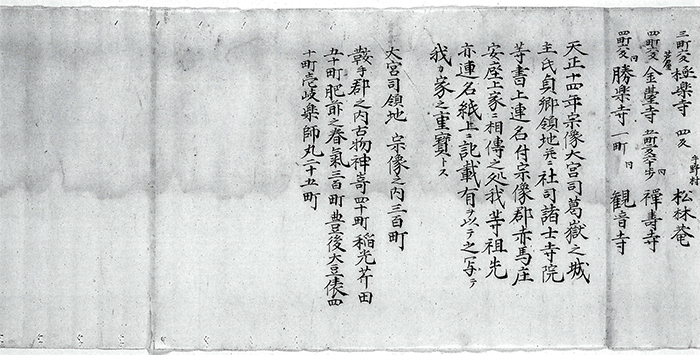 三町六反 極楽寺 四反 平野村 松林菴
四町六反 金臺寺 五町六反六十歩 円 禅壽寺
四町六反 円 勝楽寺 一町 円 観音寺
天正十四年宗像大宮司葛嶽之城
主氏貞郷領地并ニ社司諸士寺院
等書上連名付宗像郡赤馬庄
安座上家ニ相傳之処我等祖先
亦連名紙上ニ記載有ヲ以テ之写シテ
我カ家之重寶トス
大宮司領地 宗像之内三百町
鞍手郡之内古物神崎四十町 稲光芥田
五十町肥前之養氣三百町豊後大豆俵四
十町壱岐楽師丸二十五町